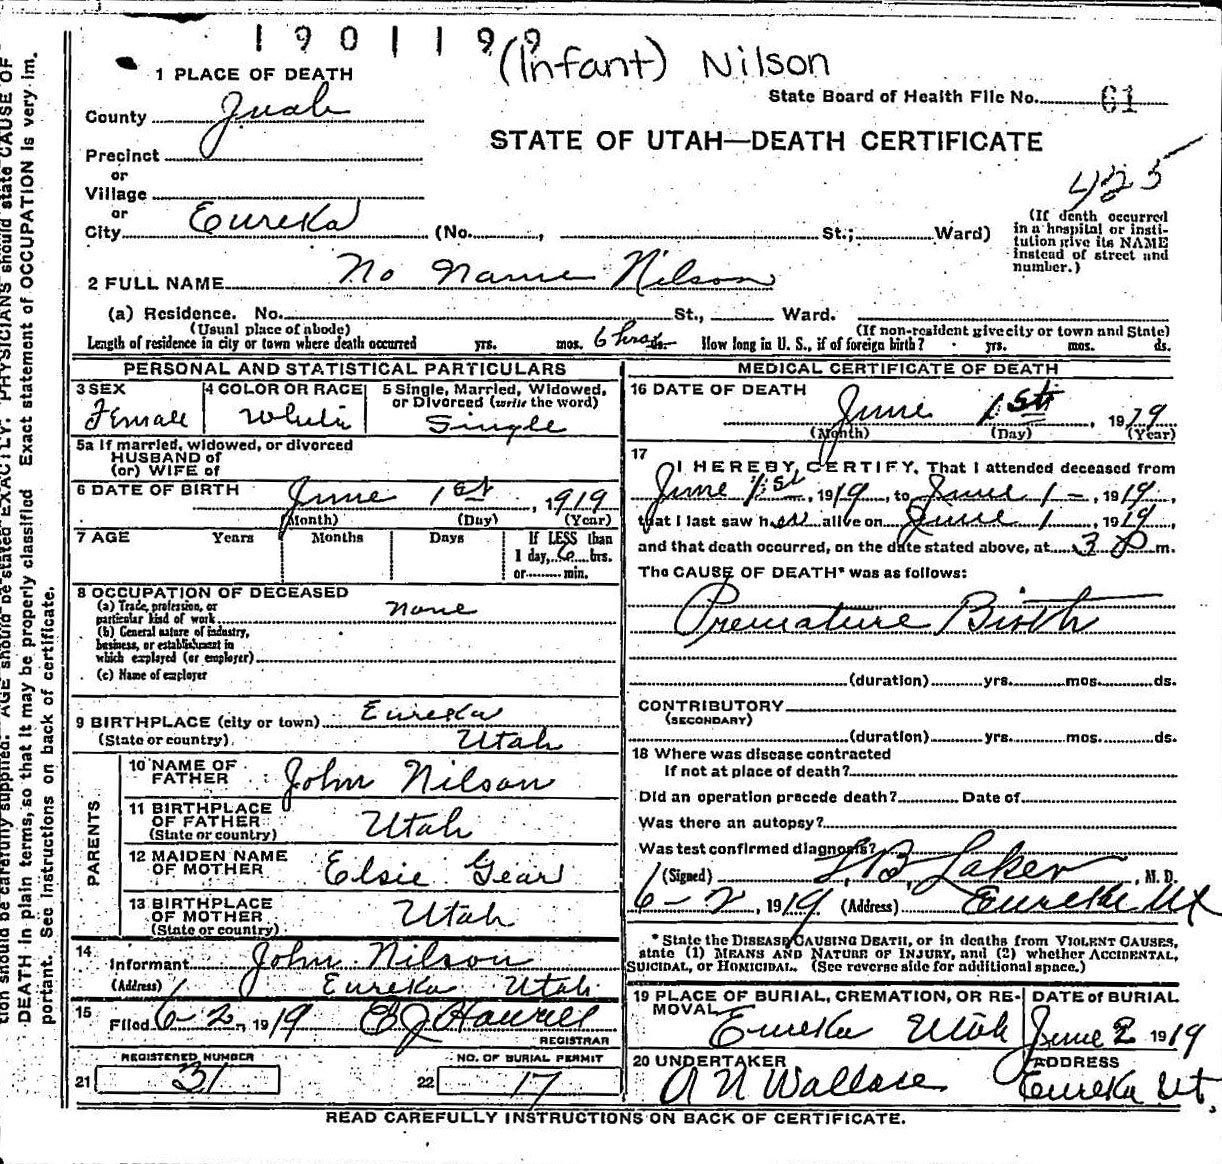 1901199
(Infant) Nilson
1 PLACE OF DEATH
State Board of Health File No. 61
County Juab
STATE OF UTAH—DEATH CERTIFICATE
Precinct
or
Village
425
or
City Eureka (No. , St.; Ward)
(If death occurred
in a hospital or insti-
tution give its NAME
instead of street and
number.)
2 FULL NAME No Name Nilson
(a) Residence. No. St., Ward.
(Usual place of abode) (If non-resident give city or town and State)
Length of residence in city or town where death occurred yrs. mos. 6 hrs ds. How long in U. S., if of foreign birth? yrs. mos. ds.
PERSONAL AND STATISTICAL PARTICULARS
3 SEX
Female
4 COLOR OR RACE
White
5 Single, Married, Widowed,
or Divorced (write the word)
Single
5a If married, widowed, or divorced
HUSBAND of
(or) WIFE of
6 DATE OF BIRTH June 1st, 1919
(Month) (Day) (Year)
7 AGE Years Months Days If LESS than
1 day, 6 hrs.
or min.
8 OCCUPATION OF DECEASED
(a) Trade, profession, or
particular kind of work none
(b) General nature of industry,
business, or establishment in
which employed (or employer)
(c) Name of employer
9 BIRTHPLACE (city or town) Eureka
(State or country) Utah
PARENTS
10 NAME OF
FATHER John Nilson
11 BIRTHPLACE
OF FATHER Utah
(State or country)
12 MAIDEN NAME
OF MOTHER Elsie Gear
13 BIRTHPLACE
OF MOTHER Utah
(State or country)
14
Informant John Nilson
(Address) Eureka Utah
15
Filed 6-2-, 1919
REGISTRAR
REGISTERED NUMBER
21 31
NO. OF BURIAL PERMIT
22 17
MEDICAL CERTIFICATE OF DEATH
16 DATE OF DEATH June 1st, 1919
(Month) (Day) (Year)
17
I HEREBY CERTIFY, That I attended deceased from
June 1st, 1919, to June 1-, 1919,
that I last saw her alive on June 1, 1919,
and that death occurred, on the date stated above, at 3 P m.
The CAUSE OF DEATH* was as follows:
Premature Birth
(duration) yrs. mos. ds.
CONTRIBUTORY
(SECONDARY)
(duration) yrs. mos. ds.
18 Where was disease contracted
If not at place of death?
Did an operation precede death? Date of
Was there an autopsy?
Was test confirmed diagnosis?
(Signed) Laker, M. D.
6-2, 1919 (Address) Eureka Ut
* State the DISEASE CAUSING DEATH, or in deaths from VIOLENT CAUSES,
state (1) MEANS AND NATURE OF INJURY, and (2) whether ACCIDENTAL,
SUICIDAL, or HOMICIDAL. (See reverse side for additional space.)
19 PLACE OF BURIAL, CREMATION, OR RE-
MOVAL Eureka Utah
DATE of BURIAL
June 2 1919
20 UNDERTAKER
A N Wallace
ADDRESS
Eureka Ut.
READ CAREFULLY INSTRUCTIONS ON BACK OF CERTIFICATE.
tion should be carefully supplied. AGE should be stated EXACTLY. PHYSICIANS should state CAUSE OF
DEATH in plain terms, so that it may be properly classified Exact statement of OCCUPATION is very im-
portant. See instructions on back of certificate.